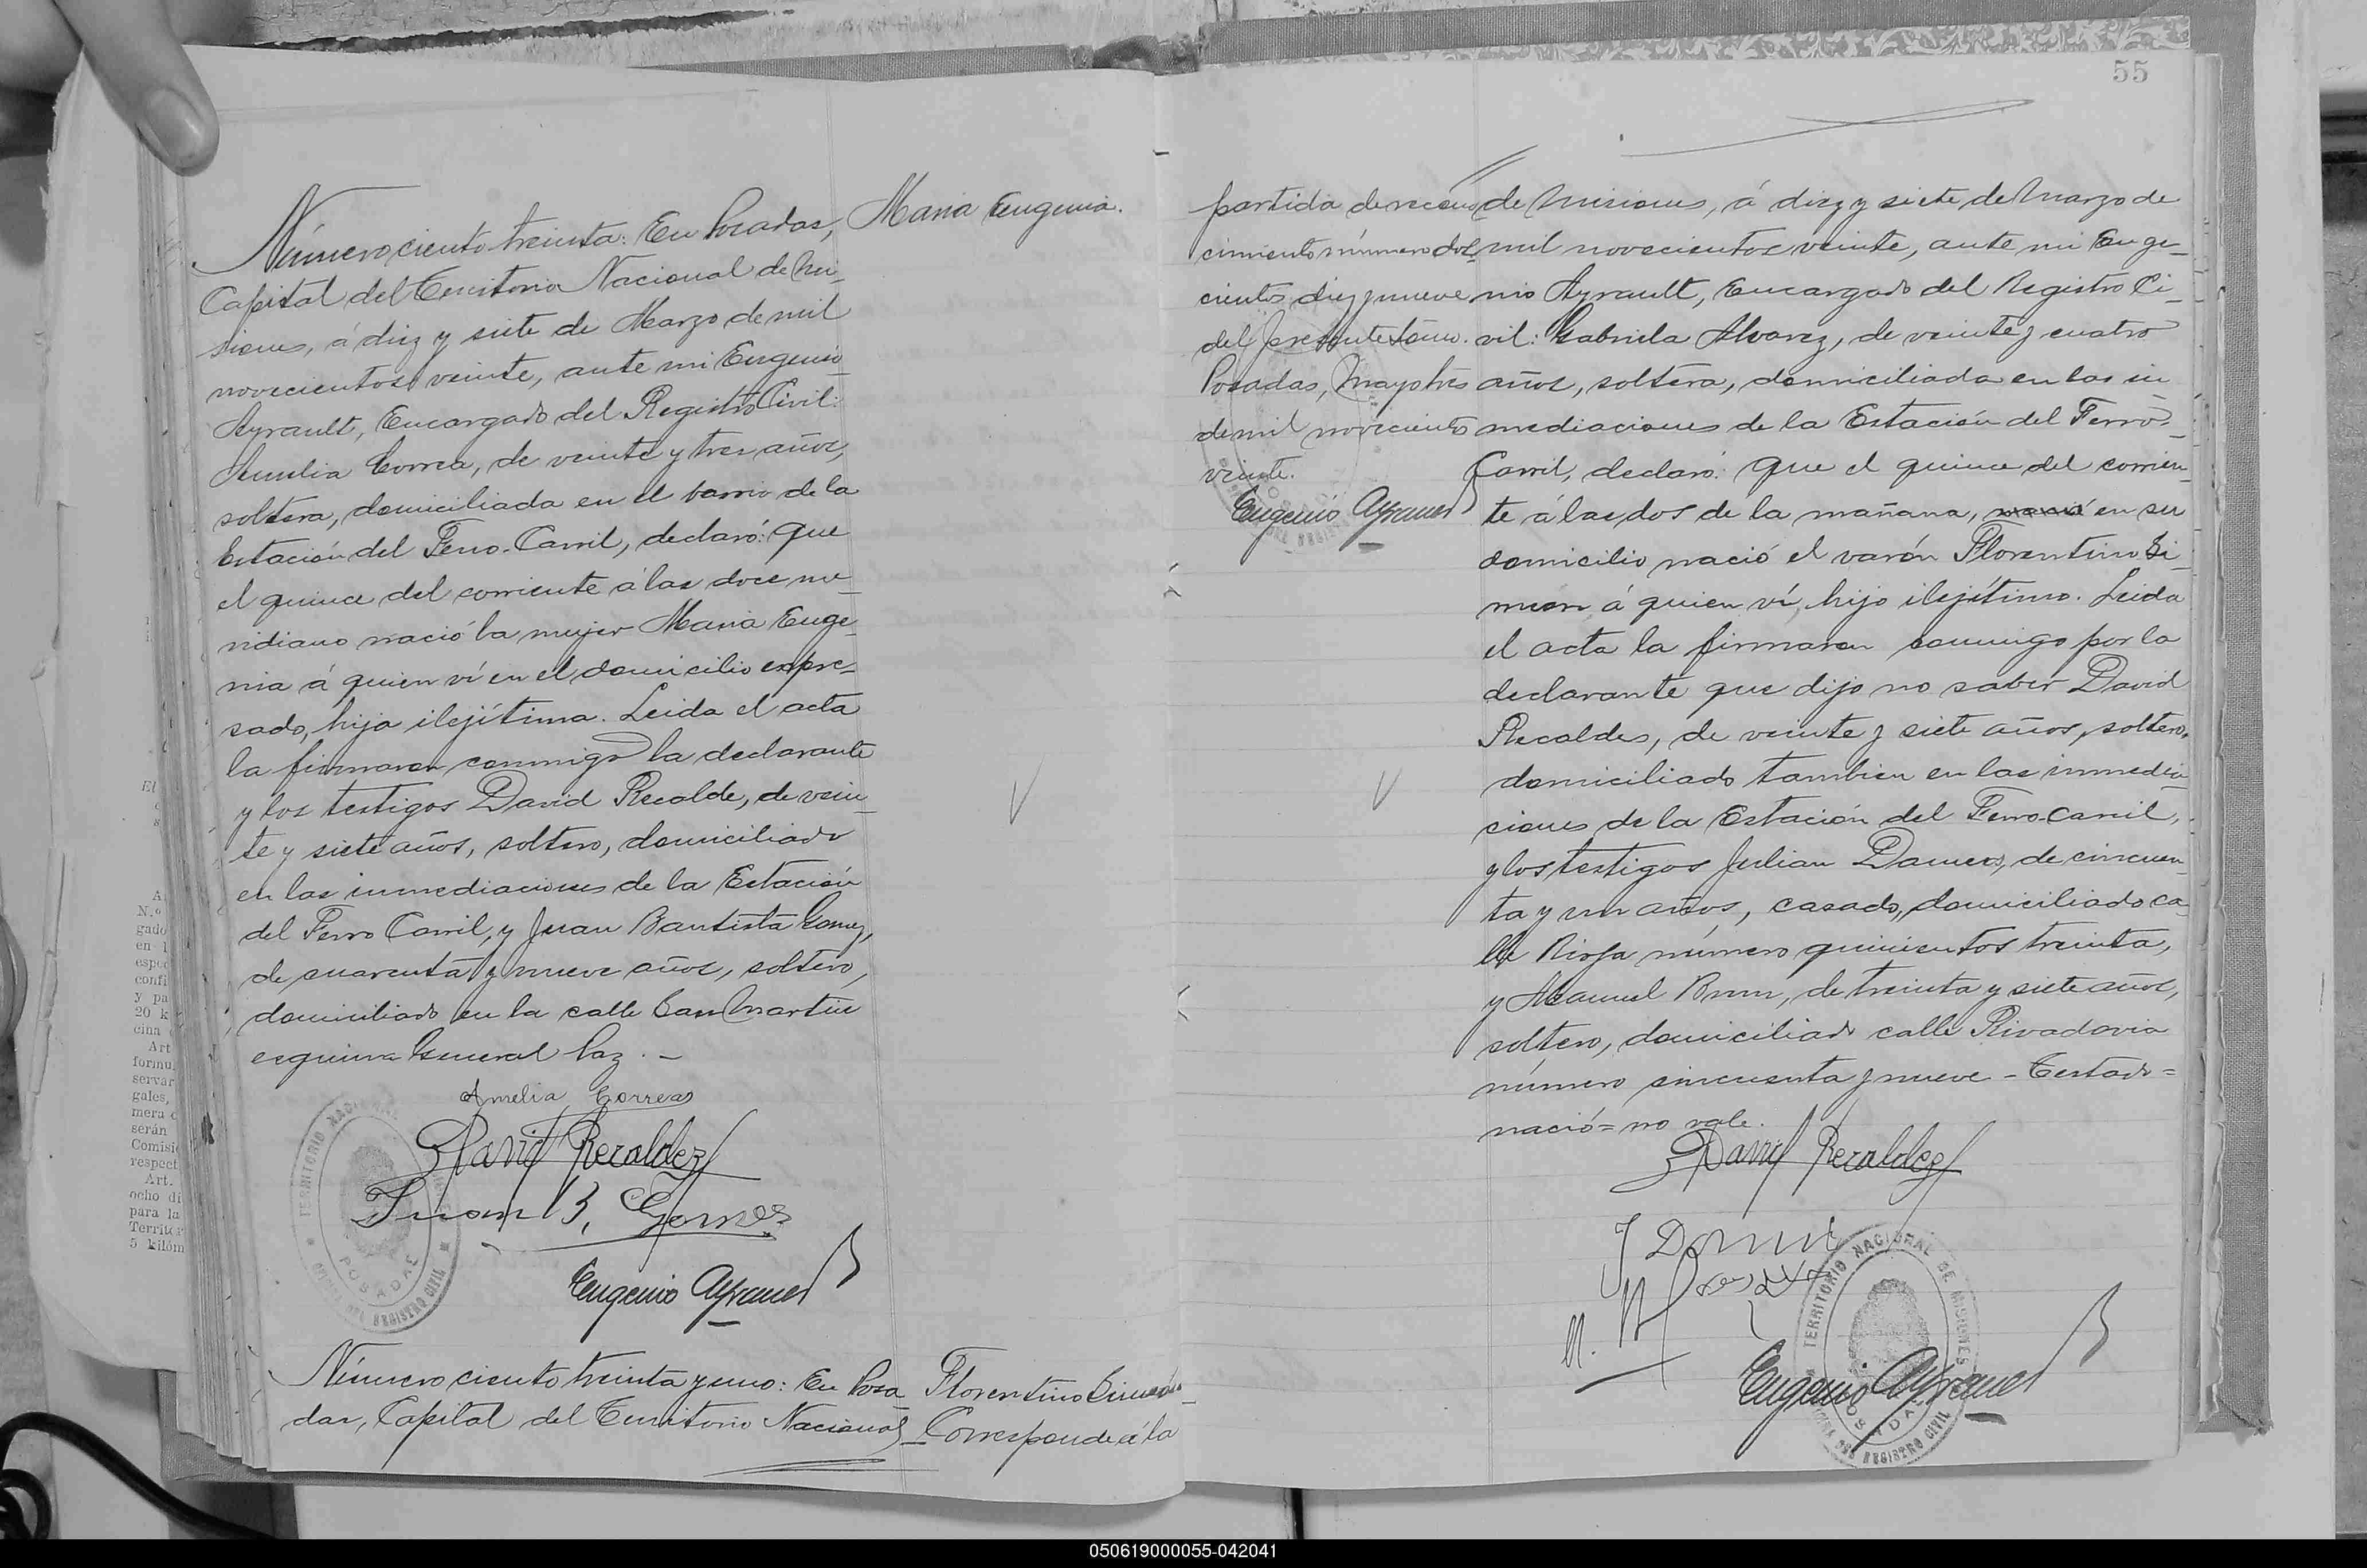 55
Número ciento treinta: En Posadas,
Capital del Territorio Nacional de Mi-
siones, á diez y siete de Marzo de mil
novecientos veinte, ante mi Eugenio
Ayrault, Encargado del Registro Civil:
Amelia Correa, de veinte y tres años,
soltera, domiciliada en el barrio de la
Estación del Ferro-Carril, declaró: que
el quince del corriente á las doce me-
ridiano nació la mujer Maria Euge-
nia á quien ví en el domicilio expre-
sado, hija ilejítima. Leida el acta
la firmaron conmigo la declarante
y los testigos David Recalde, de vein-
te y siete años, soltero, domiciliado
en las inmediaciones de la Estación
del Ferro Carril, y Juan Bautista Gomez,
de cuarenta y nueve años, soltero,
domiciliado en la calle San Martin
esquina General Paz. -
Maria Eugenia.
Amelia Correas
David Recaldez
Juan B. Gomes
Eugenio Ayrault
TERRITORIO NACIONAL
POSADAS
REGISTRO CIVIL
Número ciento treinta y uno: En Posa-
das, Capital del Territorio Nacional
Florentino Simeon-
Corresponde á la
partida de recono
cimiento número dos
cientos diez y nueve
del presente tomo.
Posadas, Mayo tres
de mil novecientos
veinte.
Eugenio Ayrault
de Misiones, á diez y siete de Marzo de
mil novecientos veinte, ante mi Euge-
nio Ayrault, Encargado del Registro Ci-
vil: Gabriela Alvarez, de veinte y cuatro
años, soltera, domiciliada en las in-
mediaciones de la Estación del Ferro-
Carril, declaró: que el quince del corrien-
te á las dos de la mañana, nació en su
domicilio nació el varón Florentino Si-
meon á quien ví, hijo ilejítimo. Leida
el acta la firmaron conmigo por la
declarante que dijo no saber David
Recaldes, de veinte y siete años, soltero,
domiciliado tambien en las inmedia-
ciones de la Estación del Ferro-carril,
y los testigos Julian de cincuen-
ta y un años, casado, domiciliado ca-
lle Rioja número quinientos treinta,
y Manuel de treinta y siete años,
soltero, domiciliado calle Rivadavia
número cincuenta y nueve - Testado =
nació = no vale.
David Recaldez
TERRITORIO NACIONAL DE MISIONES
POSADAS
OFICINA DEL REGISTRO CIVIL
Eugenio Ayrault
050619000055-042041